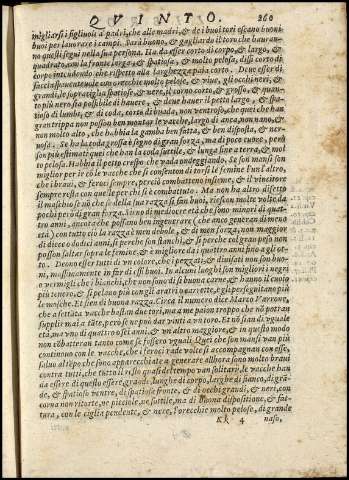 QVINTO. 260
migliarsi i figliuoli a padri, che alle madri, & de i buoi tori escano buoni
buoi per lauorare i campi. Sarà buono, & gagliardo il toro che hauranno
questi segni nella sua persona. Ha da esser corto di corpo, & largo, &
quadrato, con la fronte larga, & spatiosa, & molto pelosa, dissi corto di
corpo intendendo che rispetto alla larghezza paia corto. Deue esser di
faccia
grandi, le sopraciglia spatiose, & nere, il corno corto, & grosso, & quan
to più nero sia possibile di hauere, & deue hauer il petto largo, & spa-
tioso di lombi, & di coda, corto di buada, non ventroso, che quei che han
gran trippa non possono ben montar le vacche, largo di anca, non nano, &
non molto alto, che habbia la gamba ben fatta, & ben disposta, & ner-
uosa. Se ha la coda grossa è segno di gran forza, ma di poco cuore, però
son più estimati quei che han la coda sottile, & lunga fino a terra, & mol
to pelosa. Habbia il petto crespo che vada ondeggiando. Se son mansi son
miglior per ciò le vacche che si consenton di tor si le femine l'un l'altro,
che i braui, & feroci sempre, perciò combatteno insieme, & il vincitore
sempre resta con quelle per chi s'è combattuto. Ma non ha altro difetto
il maschio se nò che se della sua razza si fan buoi, riescon molte volte da
pochi però di gran forza. Si uno di mediocre età che sono minori di quat-
tro anni, ancora che possano ben ingentrare (che anco generan di meno
età) con tutto ciò la razza è men debole, & di men forza, non maggior
di dieci o dodici anni, sì perche son stanchi, & sì perche col gran peso non
posson saltar sopra le femine, & è migliore da i quattro anni fino agli ot-
to. Deono esser tutti di vn colore, che i pezzati, & diuisati non son buo-
ni, massimamente in far di essi buoi. In alcuni luoghi son migliori i negri
o vermigli che i bianchi, che uon sono di buona carne, & hanno il cuoio
più tenero, & si pelano più con gli aratri o carrette, egli perseguitano più
le mosche. Et sien di buona razza. Circa il numero dice Marco Varrone,
che a settāta vacche bastin due tori, ma a me paion troppo che nō potran
supplir mai a tāte, però se ne può dar vinti a vn toro. Et nō sian di vguale
età, ma vn di quattro o sei anni, & vn altro maggiore, & in questo modo
non cōbatteran tanto come se fossero vguali. Quei che son mansi van più
continuo con le vacche, che i feroci rade volte si accompagnan con esse,
saluo al tēpo che sono apparecchiate a generare allhora sono molto braui
contra tutti, che tutto il resto quasi del tempo van solitari, le vacche han
da essere di questo essere, grandi, lunghe di corpo, larghe di fianco, di gran
de, & spatioso ventre, di spatiose fronte, & di occhi grandi, & neri, con
corna non ritorte, ne picciole, ne sottile, ma di buona dispositione, & fat-
tura, con le ciglia pendente, & nere, l'orecchie molto pelose, di grande
Kk 4 naso,